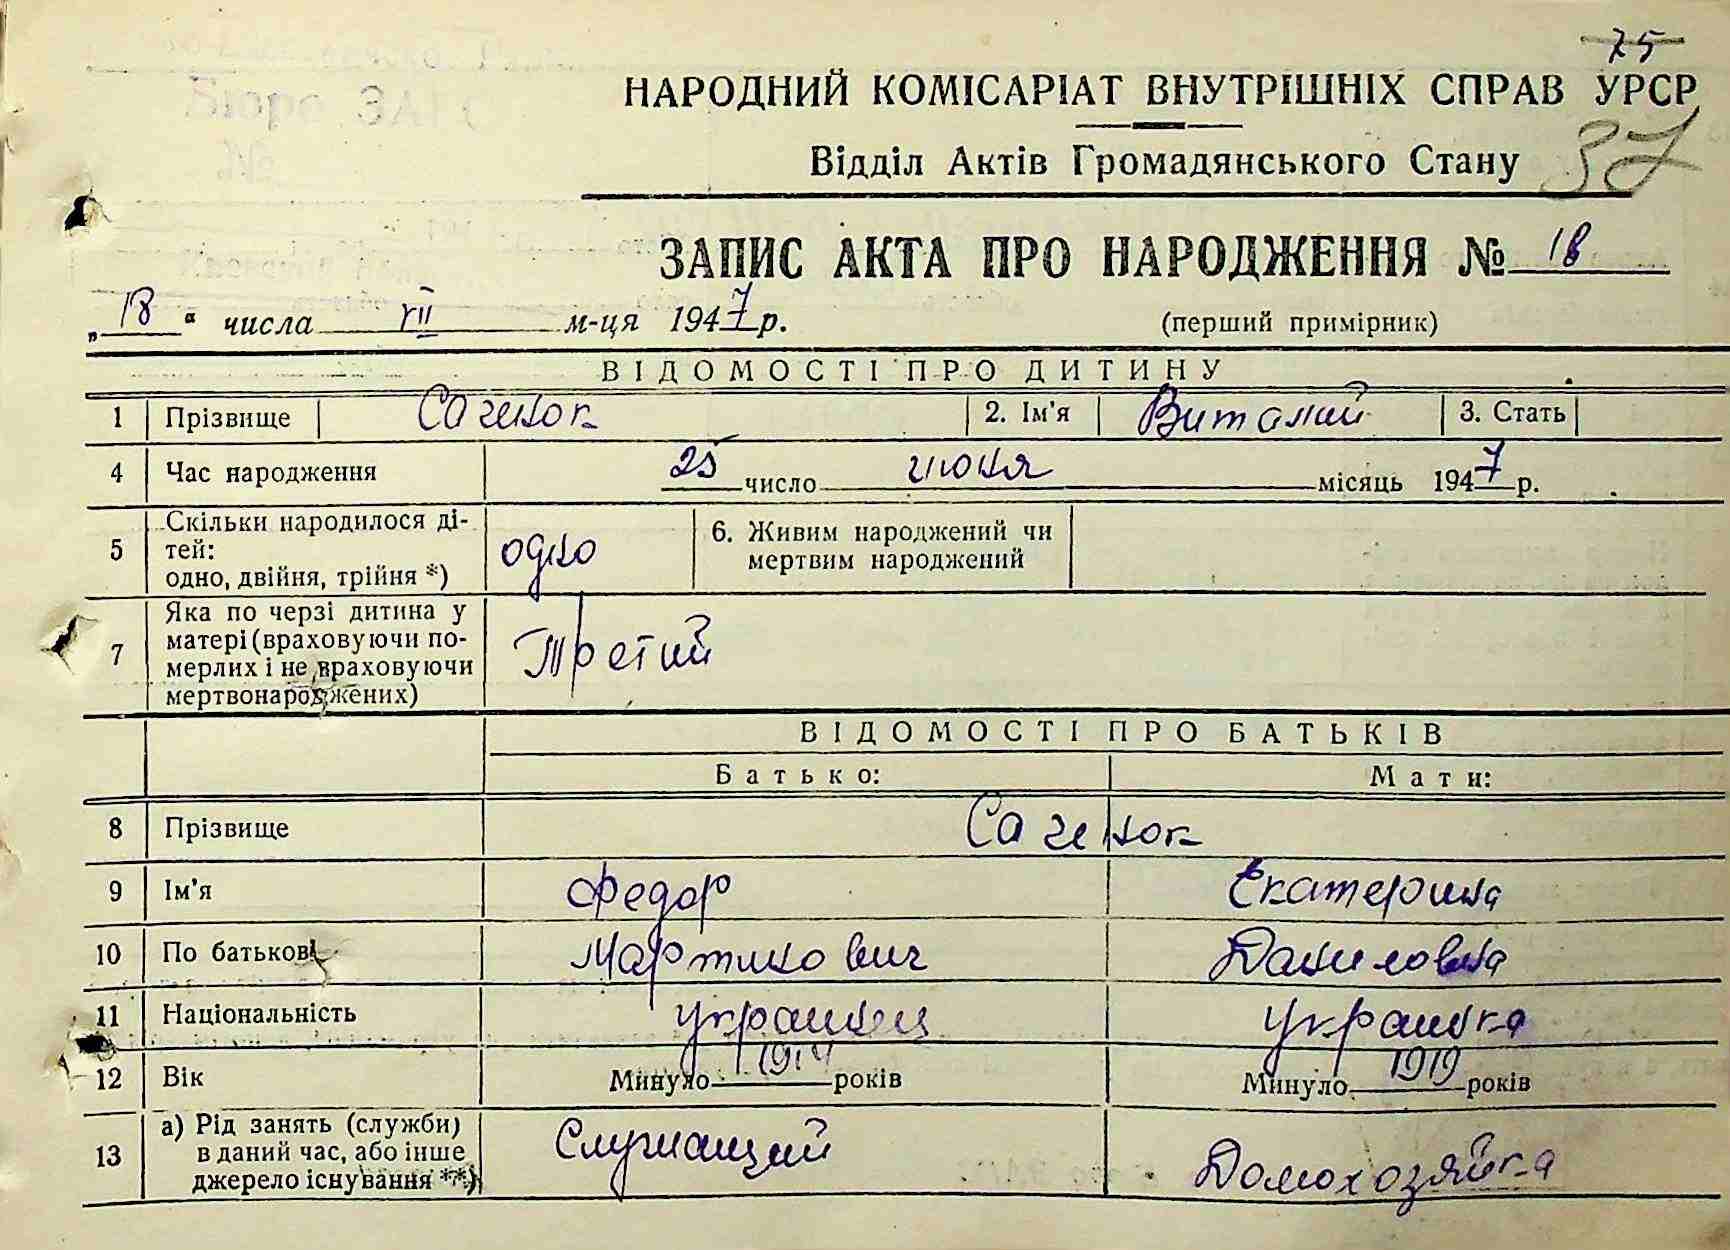 75
НАРОДНИЙ КОМІСАРІАТ ВНУТРІШНІХ СПРАВ УРСР
37
Відділ Актів Громадянського Стану
ЗАПИС АКТА ПРО НАРОДЖЕННЯ № 18
„18“ числа VII м-ця 1947 р. (перший примірник)
ВІДОМОСТІ ПРО ДИТИНУ
1 Прізвище Саченок 2. Ім'я Виталий 3. Стать
4 Час народження 25 число июня місяць 1947 р.
5 Скільки народилося ді-
тей:
одно, двійня, трійня *) одно 6. Живим народжений чи
мертвим народжений
7 Яка по черзі дитина у
матері (враховуючи по-
мерлих і не враховуючи
мертвонароджених) Третий
ВІДОМОСТІ ПРО БАТЬКІВ
Батько: Мати:
8 Прізвище Саченок
9 Ім'я Федор Екатерина
10 По батькові Мартинович Даниловна
11 Національність украинец украинка
12 Вік Минуло 1914 років Минуло 1919 років
13 а) Рід занять (служби)
в даний час, або інше
джерело існування **) Служащий Домохозяйка